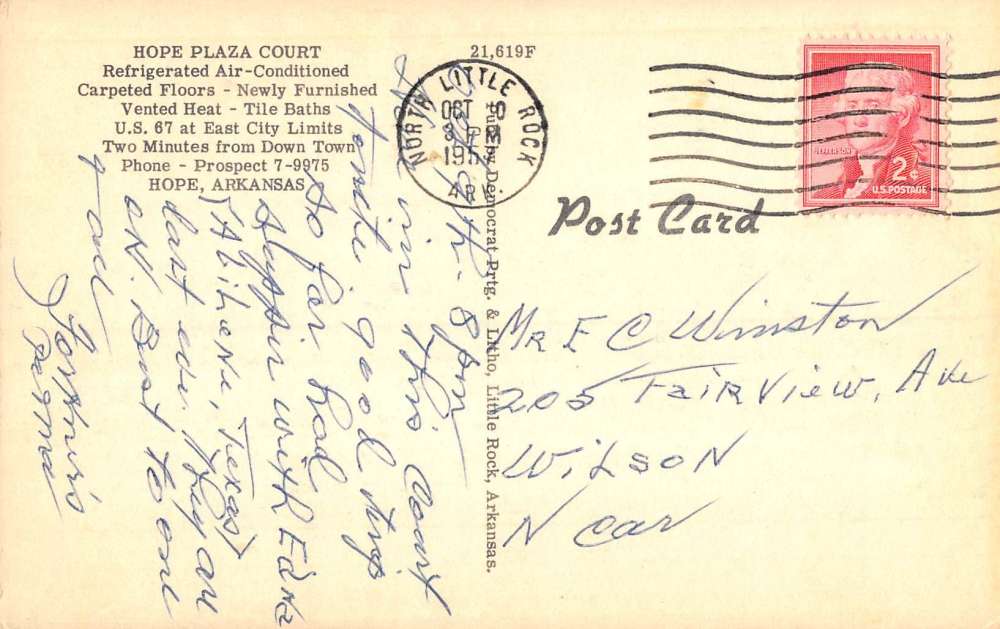 HOPE PLAZA COURT
Refrigerated Air-Conditioned
Carpeted Floors - Newly Furnished
Vented Heat - Tile Baths
U.S. 67 at East City Limits
Two Minutes from Down Town
Phone - Prospect 7-9975
HOPE, ARKANSAS
21,619F
NORTH LITTLE ROCK
OCT
PM
JEFFERSON
2¢
U.S. POSTAGE
Post Card
Democrat Prtg. & Litho, Little Rock, Arkansas.
8 pm
in this Court
Tonite. good trip
so far had
supper with Edna
(Abilene, Texas)
last eve.
OK. Best to one
& all
Mr E C Winston
205 Fairview, Ave
Wilson
N Car